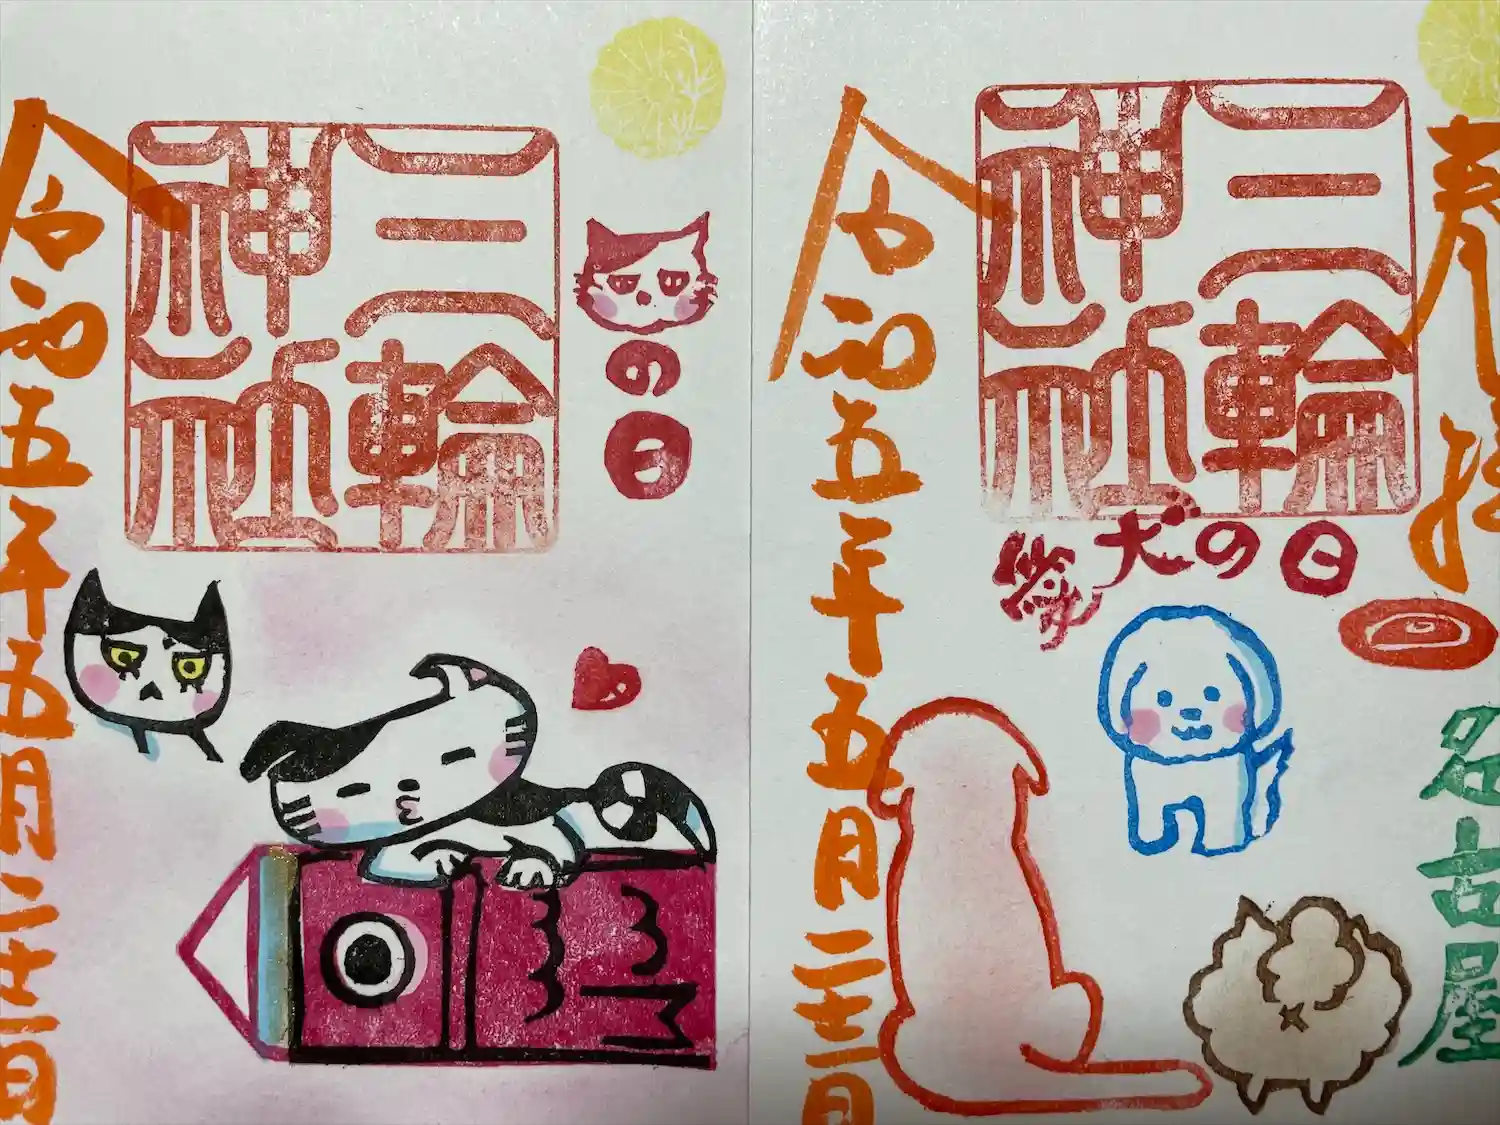 三輪神社
の日
令和五年五月二十一日
奉拝
名古屋
三輪神社
犬の日
令和五年五月二十二日